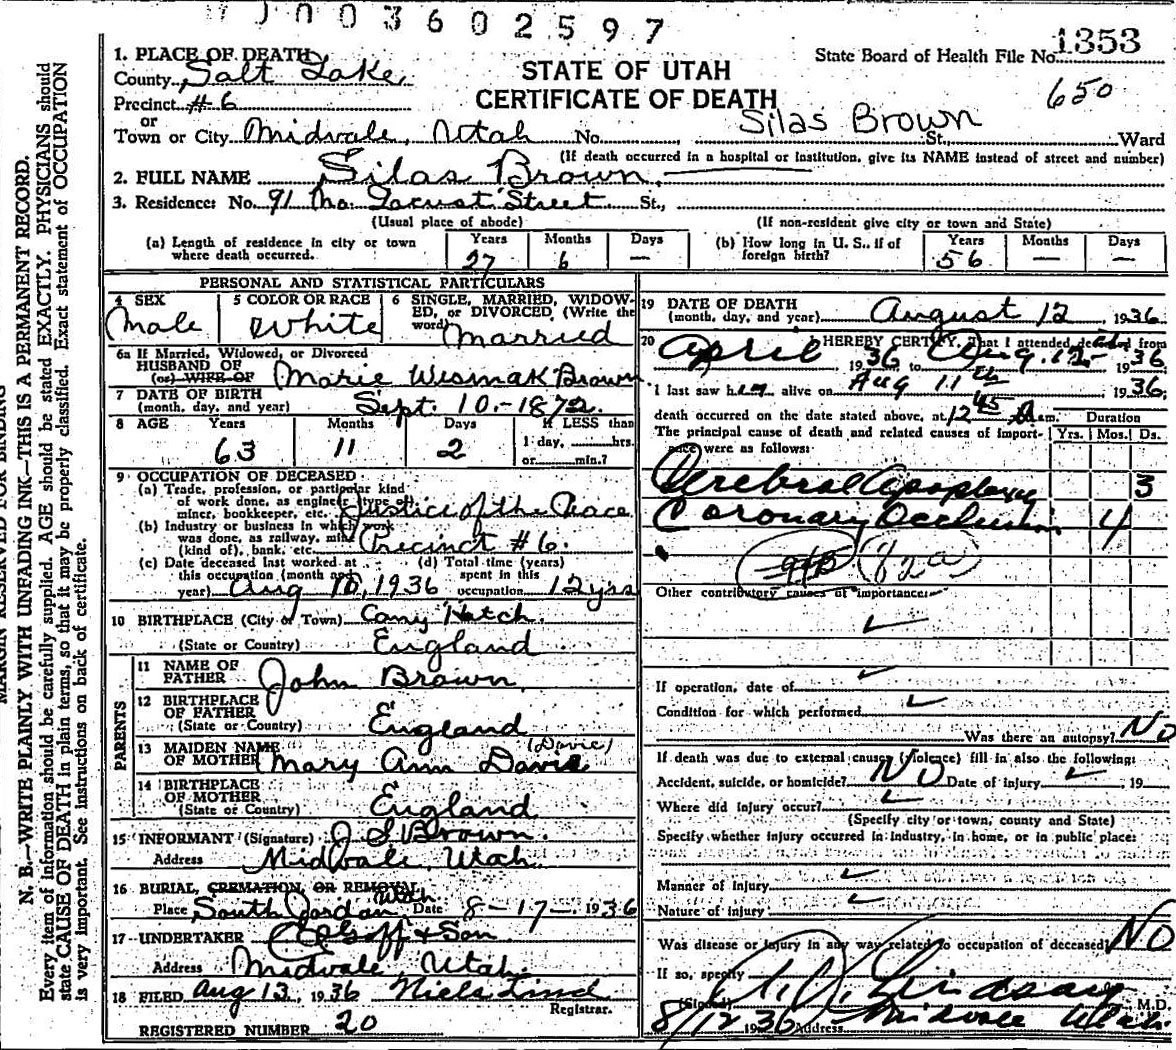 J003602597
1353
State Board of Health File No.
650
STATE OF UTAH
CERTIFICATE OF DEATH
1. PLACE OF DEATH
County Salt Lake
Precinct #6
or
Town or City Midvale, Utah No. Silas Brown St., Ward
(If death occurred in a hospital or institution, give its NAME instead of street and number)
2. FULL NAME Silas Brown.
3. Residence: No. 91 No. Locust Street St.,
(Usual place of abode) (If non-resident give city or town and State)
(a) Length of residence in city or town where death occurred. Years 27 Months 6 Days —
(b) How long in U. S., if of foreign birth? Years 56 Months — Days —
PERSONAL AND STATISTICAL PARTICULARS
4 SEX Male
5 COLOR OR RACE White
6 SINGLE, MARRIED, WIDOWED, or DIVORCED, (Write the word) Married
6a If Married, Widowed, or Divorced
HUSBAND OF
(or) WIFE OF Marie Wismak Brown
7 DATE OF BIRTH
(month, day, and year) Sept. 10.-1872.
8 AGE Years 63 Months 11 Days 2 If LESS than 1 day, hrs. or min.?
9 OCCUPATION OF DECEASED:
(a) Trade, profession, or particular kind
of work done, as engineer, type of
miner, bookkeeper, etc. Justice of the Peace
(b) Industry or business in which work
was done, as railway, mine
(kind of), bank, etc. Precinct #6.
(c) Date deceased last worked at this occupation (month and year) Aug 10, 1936
(d) Total time (years) spent in this occupation 12 yrs
10 BIRTHPLACE (City or Town) Cany Hatch.
(State or Country) England
PARENTS
11 NAME OF FATHER John Brown
12 BIRTHPLACE OF FATHER
(State or Country) England
13 MAIDEN NAME OF MOTHER Mary Ann Davie (Davie)
14 BIRTHPLACE OF MOTHER
(State or Country) England
15 INFORMANT (Signature) J S Brown.
Address Midvale, Utah.
16 BURIAL, CREMATION, OR REMOVAL
Place South Jordan Utah Date 8-17- 1936
17 UNDERTAKER Goff & Son
Address Midvale Utah.
18 FILED Aug 13, 1936 Niels Lind
Registrar.
REGISTERED NUMBER 20
19 DATE OF DEATH
(month, day, and year) August 12 1936
20 HEREBY CERTIFY, That I attended deceased from
April 1936 to Aug. 12 1936
I last saw him alive on Aug 11th 1936,
death occurred on the date stated above, at 12 45 A m.
The principal cause of death and related causes of importance were as follows:
Duration Yrs. Mos. Ds.
Cerebral Apoplexy 3
Coronary Occlusion 4
82a
Other contributory causes of importance:
If operation, date of
Condition for which performed
Was there an autopsy? No
If death was due to external causes (violence) fill in also the following:
Accident, suicide, or homicide? NO Date of injury , 19
Where did injury occur?
(Specify city or town, county and State)
Specify whether injury occurred in industry, in home, or in public place:
Manner of injury
Nature of injury
Was disease or injury in any way related to occupation of deceased No
If so, specify
(Signed) Lindsay M.D.
8/12 1936 Address Midvale Utah.
MARGIN RESERVED FOR BINDING
N. B.—WRITE PLAINLY WITH UNFADING INK—THIS IS A PERMANENT RECORD.
Every item of information should be carefully supplied. AGE should be stated EXACTLY. PHYSICIANS should
state CAUSE OF DEATH in plain terms, so that it may be properly classified. Exact statement of OCCUPATION
is very important. See instructions on back of certificate.